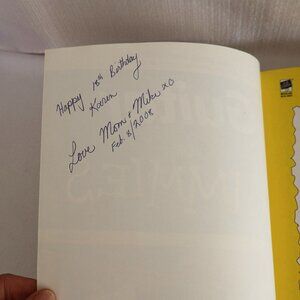 Happy 18th Birthday
Karen
Love Mom + Mike XO
Feb 8/2008